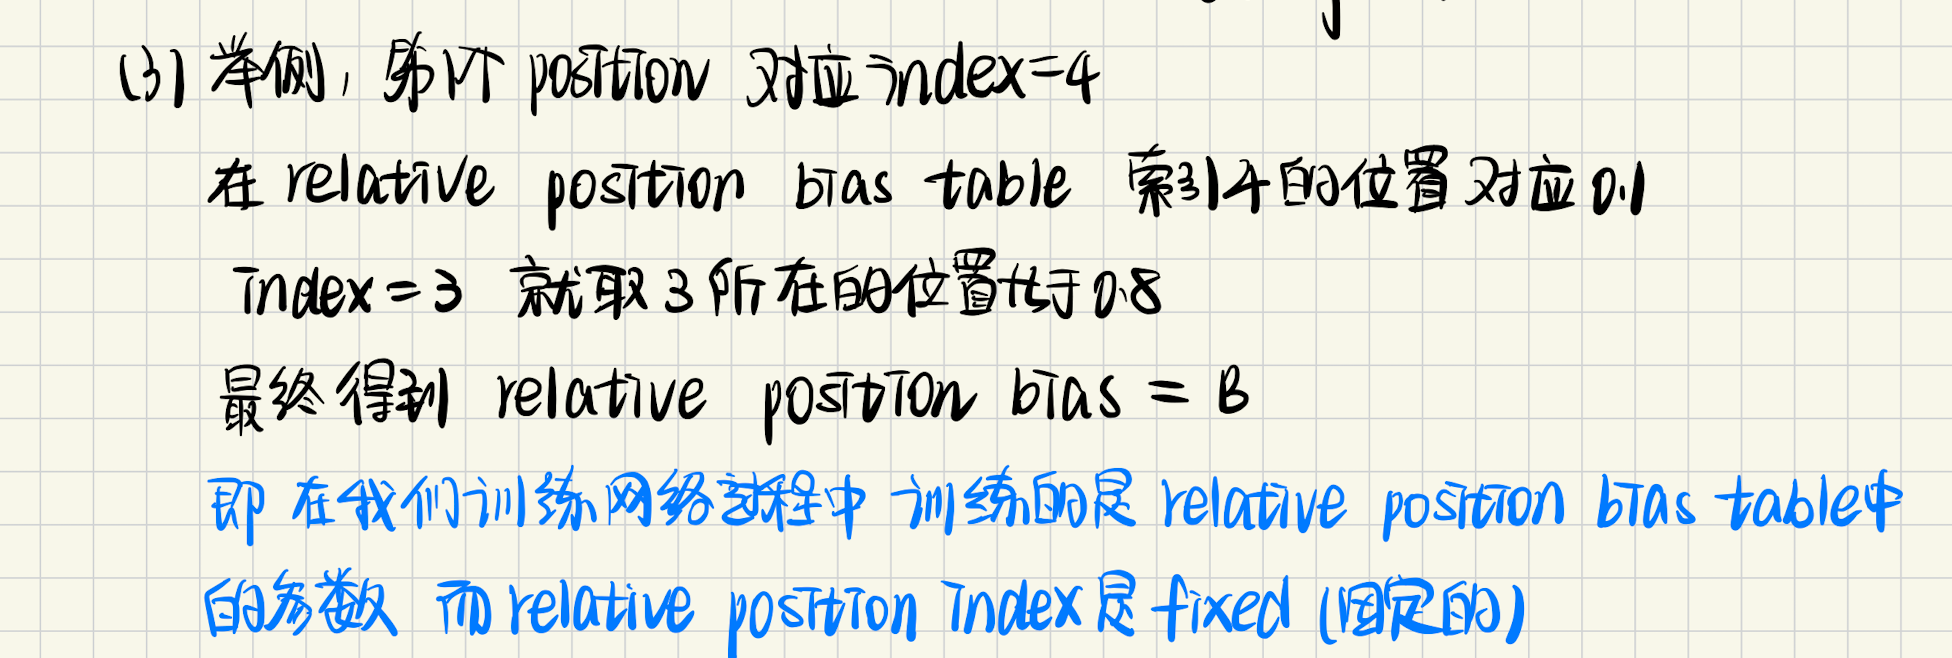 (3) 举例，第1个 position 对应 index=4
在 relative position bias table 索引4的位置对应0.1
index=3 就取3所在的位置也于0.8
最终得到 relative position bias = B
即 在我们训练网络过程中 训练的是 relative position bias table中
的参数 而 relative position index是 fixed (固定的)